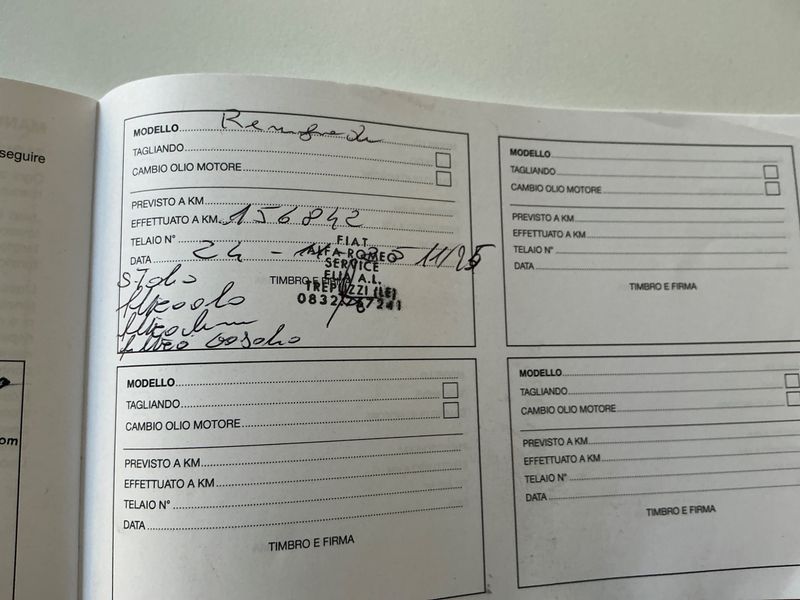 seguire
om
MODELLO
TAGLIANDO
CAMBIO OLIO MOTORE
PREVISTO A KM
EFFETTUATO A KM 156842
TELAIO N°
DATA 24 - 11/25
TIMBRO E FIRMA
F.I.A.T.
ALFA ROMEO
SERVICE
ELIA A.L.
TREPUZZI (LE)
MODELLO
TAGLIANDO
CAMBIO OLIO MOTORE
PREVISTO A KM
EFFETTUATO A KM
TELAIO N°
DATA
TIMBRO E FIRMA
MODELLO
TAGLIANDO
CAMBIO OLIO MOTORE
PREVISTO A KM
EFFETTUATO A KM
TELAIO N°
DATA
TIMBRO E FIRMA
MODELLO
TAGLIANDO
CAMBIO OLIO MOTORE
PREVISTO A KM
EFFETTUATO A KM
TELAIO N°
DATA
TIMBRO E FIRMA